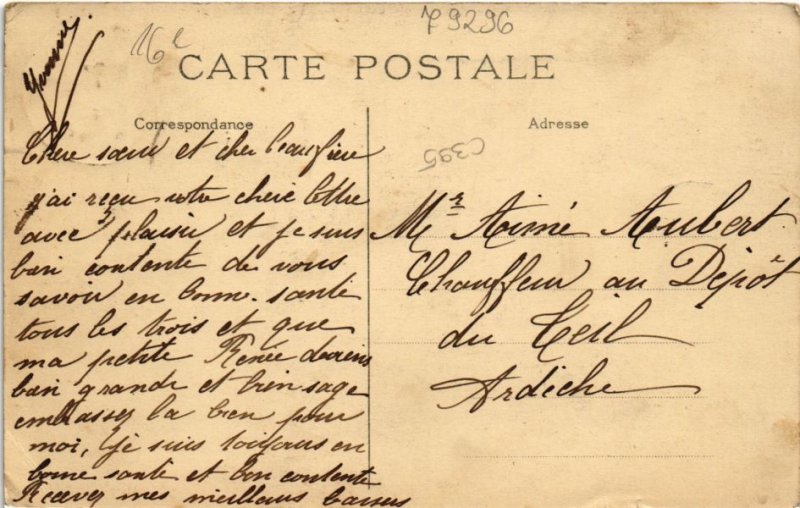 79296
16e
CARTE POSTALE
Correspondance
Adresse
C395
Chere sœur et cher beaufrere
j'ai reçu votre chere lettre
avec plaisir et je suis
bien contente de vous
savoir en bonne santé
tous les trois et que
ma petite Renée deviens
bien grande et bien sage
embrassez la bien pour
moi, je suis toujours en
bonne santé et bien contente
Recevez mes meilleurs baisers
Mr Aimé Aubert
Chauffeur au Dépôt
du Teil
Ardèche